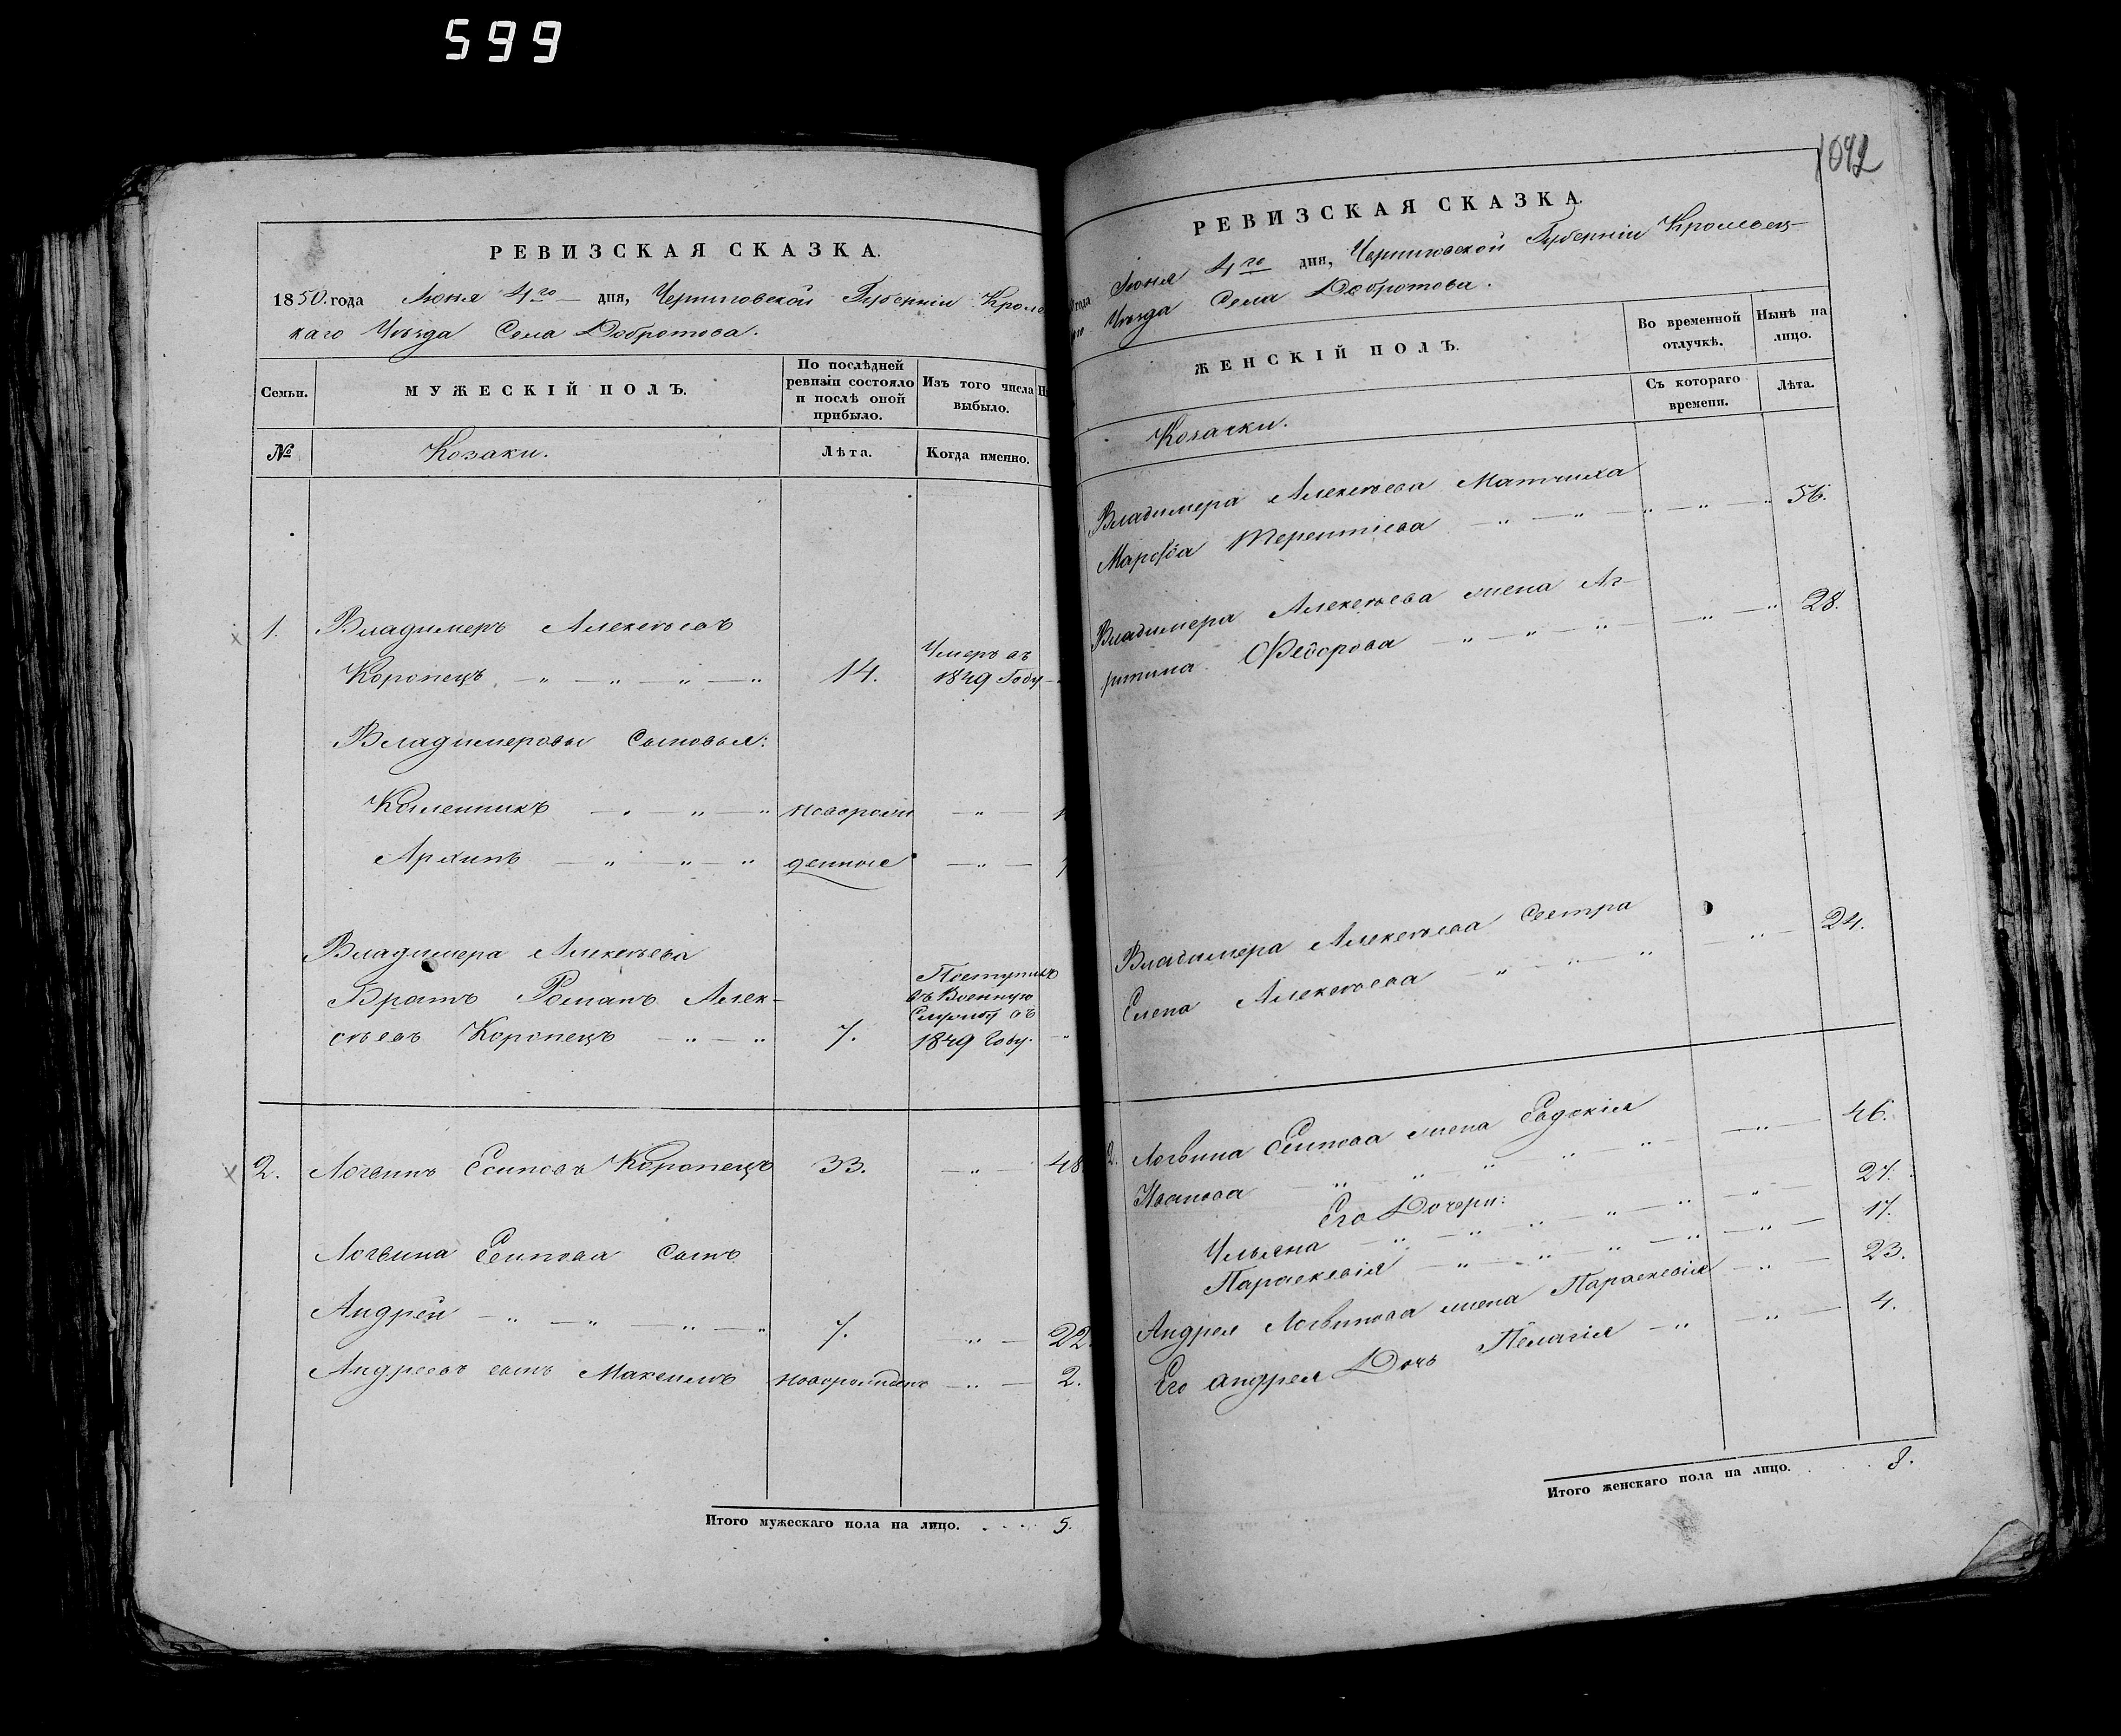 599
РЕВИЗСКАЯ СКАЗКА.
1850. года Июня 4го дня, Черниговской Губерніи Кроле
каго Уѣзда Села Добротова.
Семьи.
МУЖЕСКІЙ ПОЛЪ.
По послѣдней
ревизіи состояло
и послѣ оной
прибыло.
Изъ того числа
выбыло.
№
Козаки.
Лѣта.
Когда именно.
1. Владимеръ Алексѣевъ
Коропецъ 14. Умеръ въ
1849 Году
Владимеровы Сыновья:
Калениикъ новорож
Архипъ денные
Владимера Алексѣева
Братъ Романъ Алек-
сѣевъ Коропецъ 7. Поступилъ
въ Военную
Службу въ
1849 Году.
2. Логвинъ Есиповъ Коропецъ 33. 48
Логвина Есипова Сынъ
Андрей 7. 22.
Андреевъ сынъ Максимъ новорожденъ 2.
Итого мужескаго пола на лицо. . . . . 5.
1092
РЕВИЗСКАЯ СКАЗКА.
года Июня 4го дня, Черниговской Губерніи Кролевец-
Уѣзда Села Добротова.
ЖЕНСКІЙ ПОЛЪ.
Во временной
отлучкѣ.
Нынѣ на
лицо.
Съ котораго
времени.
Лѣта.
Козачки.
Владимера Алексѣева Матчиха
Марѳа Терентіева 56.
Владимера Алексѣева жена Аг-
рипина Федорова 28.
Владимера Алексѣева Сестра
Елена Алексѣева 24.
2. Логвина Есипова жена Евдокія
Иванова 46.
Его Дочери:
Ульяна 27.
Параскевія 17.
Андрея Логвинова жена Параскевія 23.
Его Андрея Дочь Пелагія 4.
Итого женскаго пола на лицо. . . . . 8.